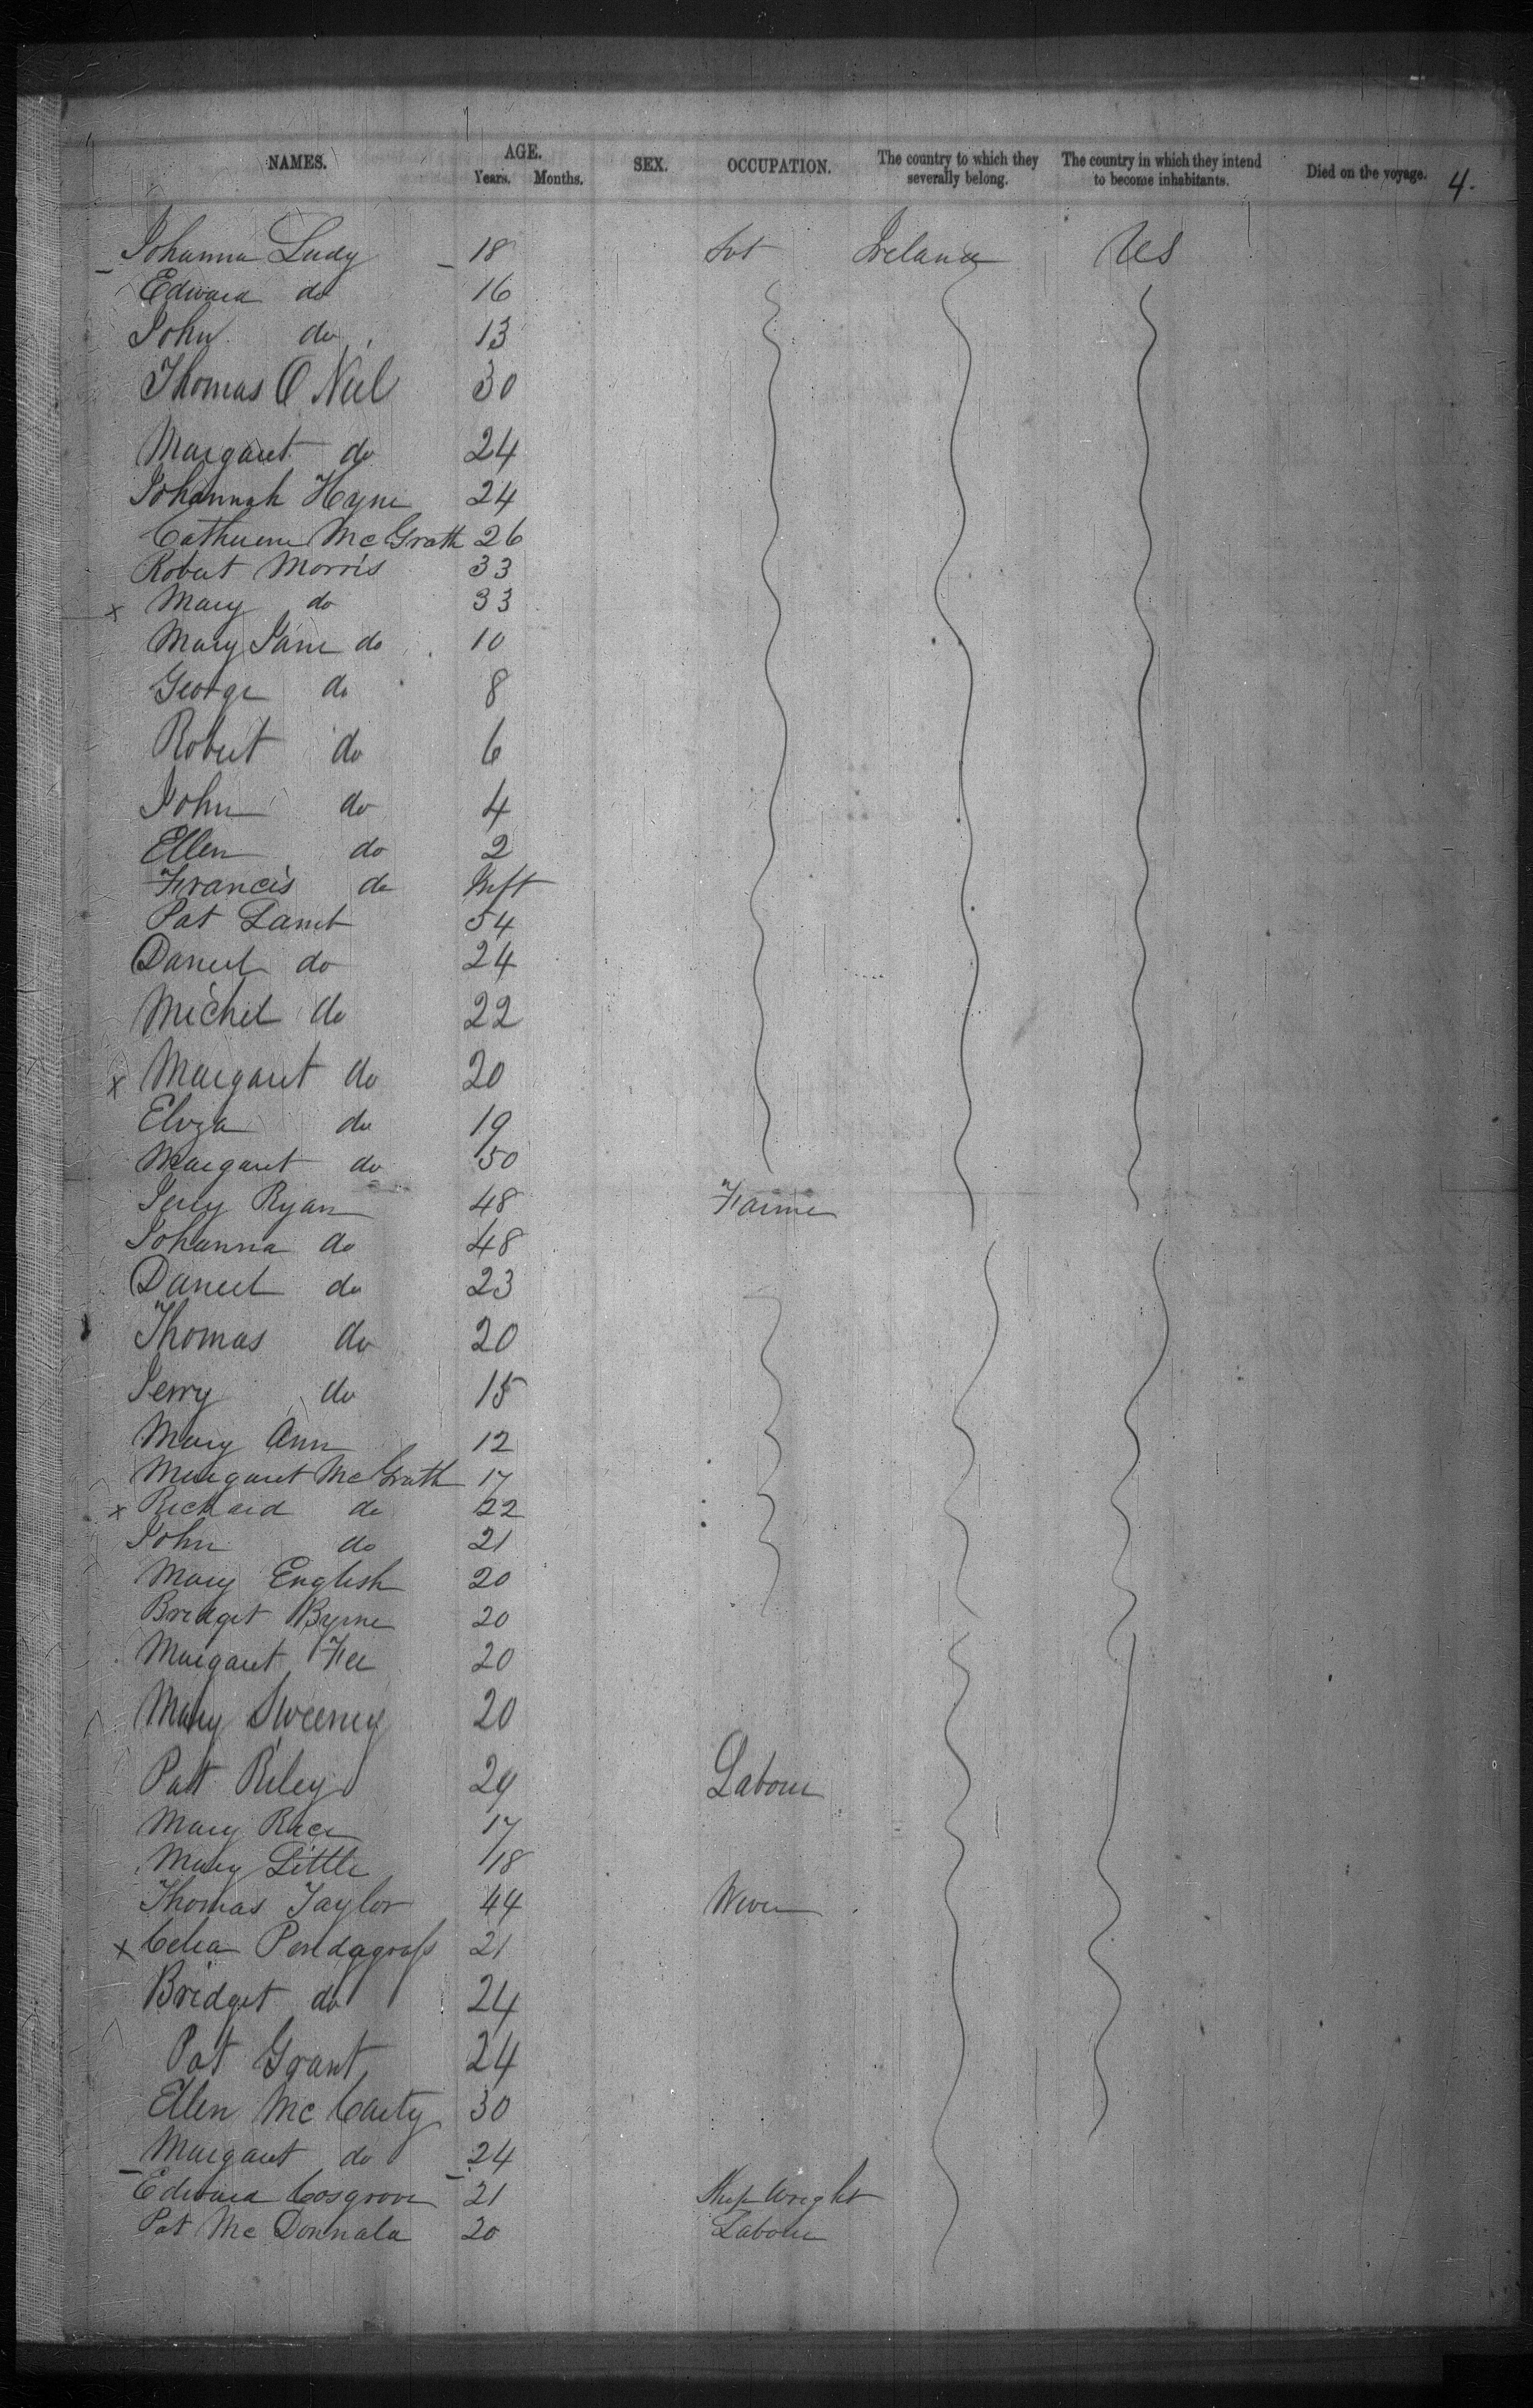 NAMES. AGE. Years. Months. SEX. OCCUPATION. The country to which they severally belong. The country in which they intend to become inhabitants. Died on the voyage. 4.
Johanna Ludy 18 Svt Ireland US
Edward do 16
John do 13
Thomas O Niel 30
Margaret do 24
Johannah Hyne 24
Catherine McGrath 26
Robert Morris 33
x Mary do 33
Mary Jane do 10
George do 8
Robert do 6
John do 4
Ellen do 2
Francis do Inft
Pat 54
Daniel do 24
Michel do 22
x Margaret do 20
Eliza do 19
Margaret do 50
Jerry Ryan 48 Farmer
Johanna do 48
Daniel do 23
Thomas do 20
Jerry do 15
Mary Ann 12
Margaret McGrath 17
x Richard do 22
John do 21
Mary English 20
Bridget Byrne 20
Margaret Fee 20
Mary Sweeney 20
Patt Riley 29 Labour
Mary Rice 17
Mary Little 18
Thomas Taylor 44 Wever
x Celia Pendagrass 21
Bridget do 24
Pat Grant 24
Ellen McCarty 30
Margaret do 24
Edward Cosgrove 21 Ship Wright
Pat McDonnald 20 Labour